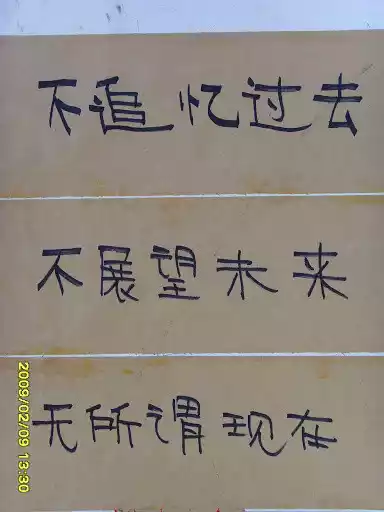 不追忆过去
不展望未来
无所谓现在
2009/02/09 13:30